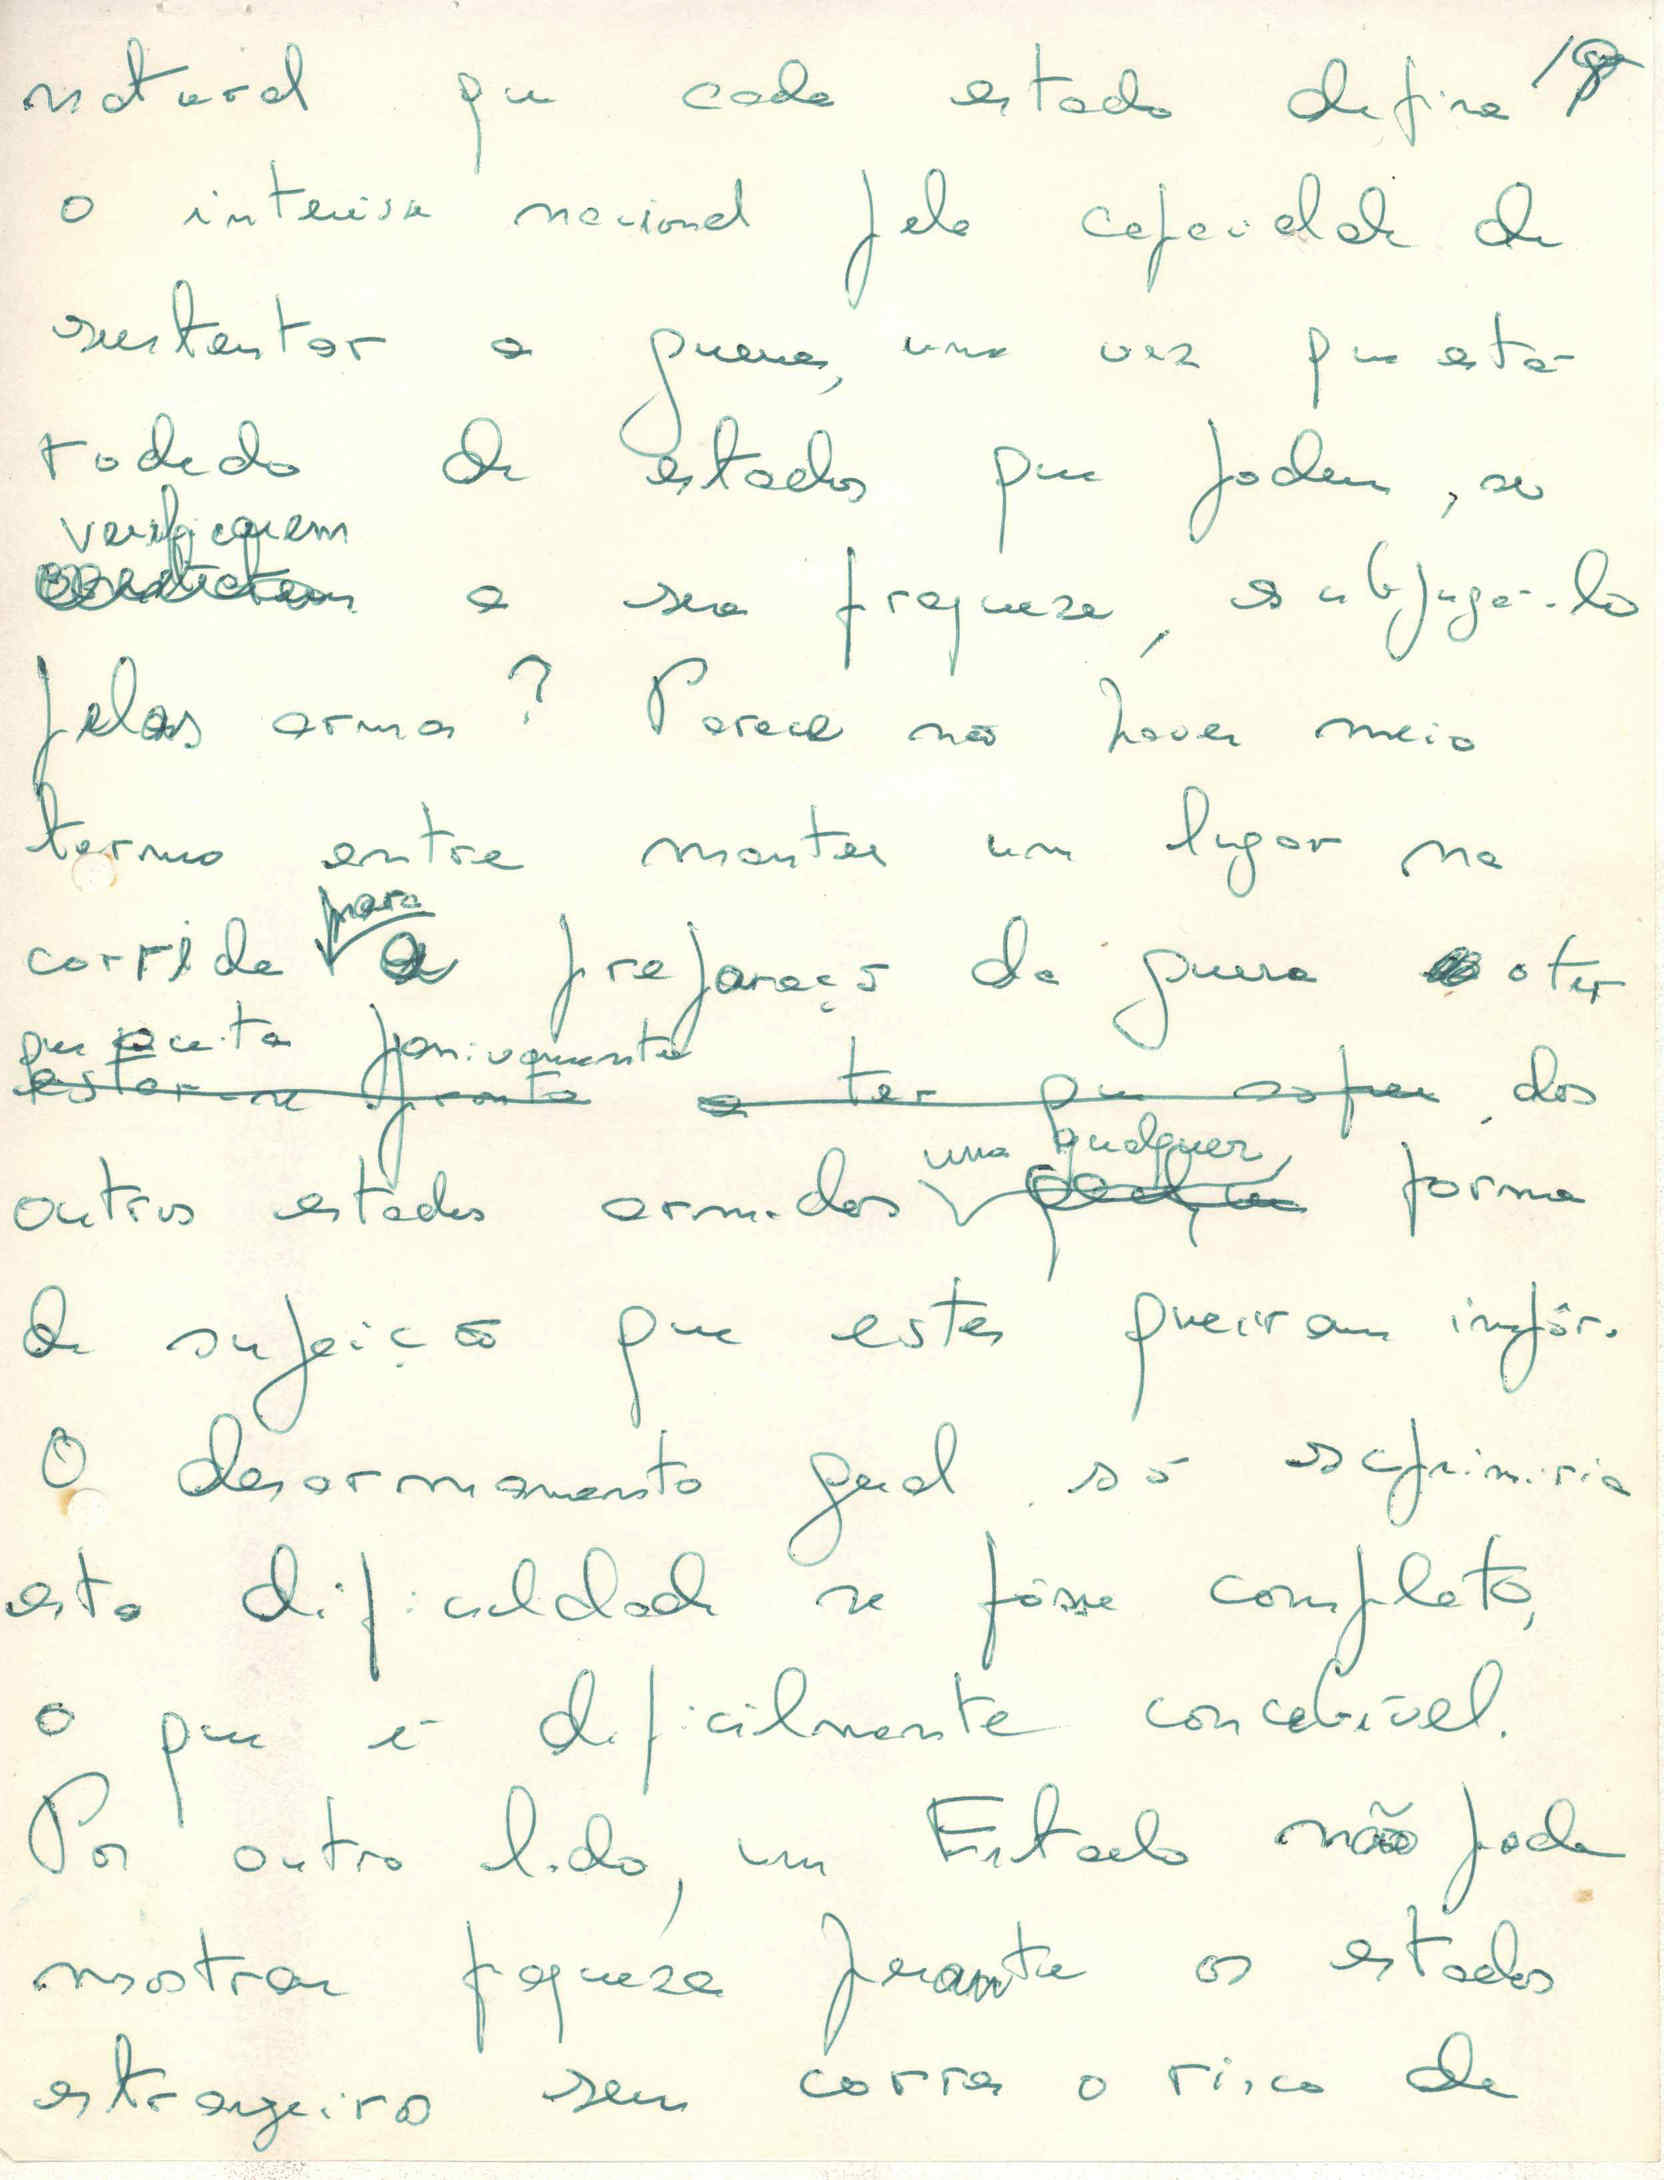 natural que cada estado defina
o interêsse nacional pela capacidade de
sustentar a guerra, uma vez que está
rodeado de estados que podem, se
verificarem
a sua fraqueza, subjugá-lo
pelas armas? Parece não haver meio
termo entre manter um lugar na
corrida para a preparação da guerra o ter
que aceita passivamente
estar-se pronto a ter que sofrer dos
outros estados armados uma qualquer, forma
de sujeição que estes queiram impôr.
O desarmamento geral só suprimiria
esta dificuldade se fôsse completo,
o que é dificilmente concebível.
Por outro lado, um Estado não pode
mostrar fraqueza perante os estados
estrangeiros sem correr o risco de